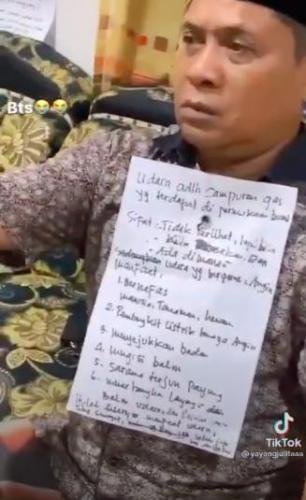 Bts😭😭
Udara adlh Campuran gas
yg terdapat di permukaan bumi
Sifat : - Tidak terlihat, tapi bisa
kita rasakan
- Ada dimana
Sedangkan udara yg bergerak : Angin
Manfaat.
1. Bernafas
manusia, Tanaman, hewan
2. Pembangkit Listrik tenaga Angin
3. menyejukkan badan
4. mengisi balon
5. sarana terjun payung
6. menerbangkan Layang² dan
Balon udara
TikTok
@yayangjulitaaa